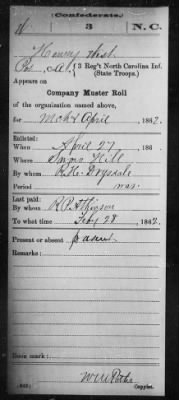 Confederate.
3 N.C.
Henry
Pvt, Co. A, 3 Reg't North Carolina Inf.
(State Troops.)
Appears on
Company Muster Roll
of the organization named above,
for Mch & April, 1862.
Enlisted:
When April 27, 186
Where Snow Hill
By whom R. H. Drysdale
Period war.
Last paid:
By whom
To what time Feby 28, 1862.
Present or absent
Remarks:
Book mark:
Copyist.